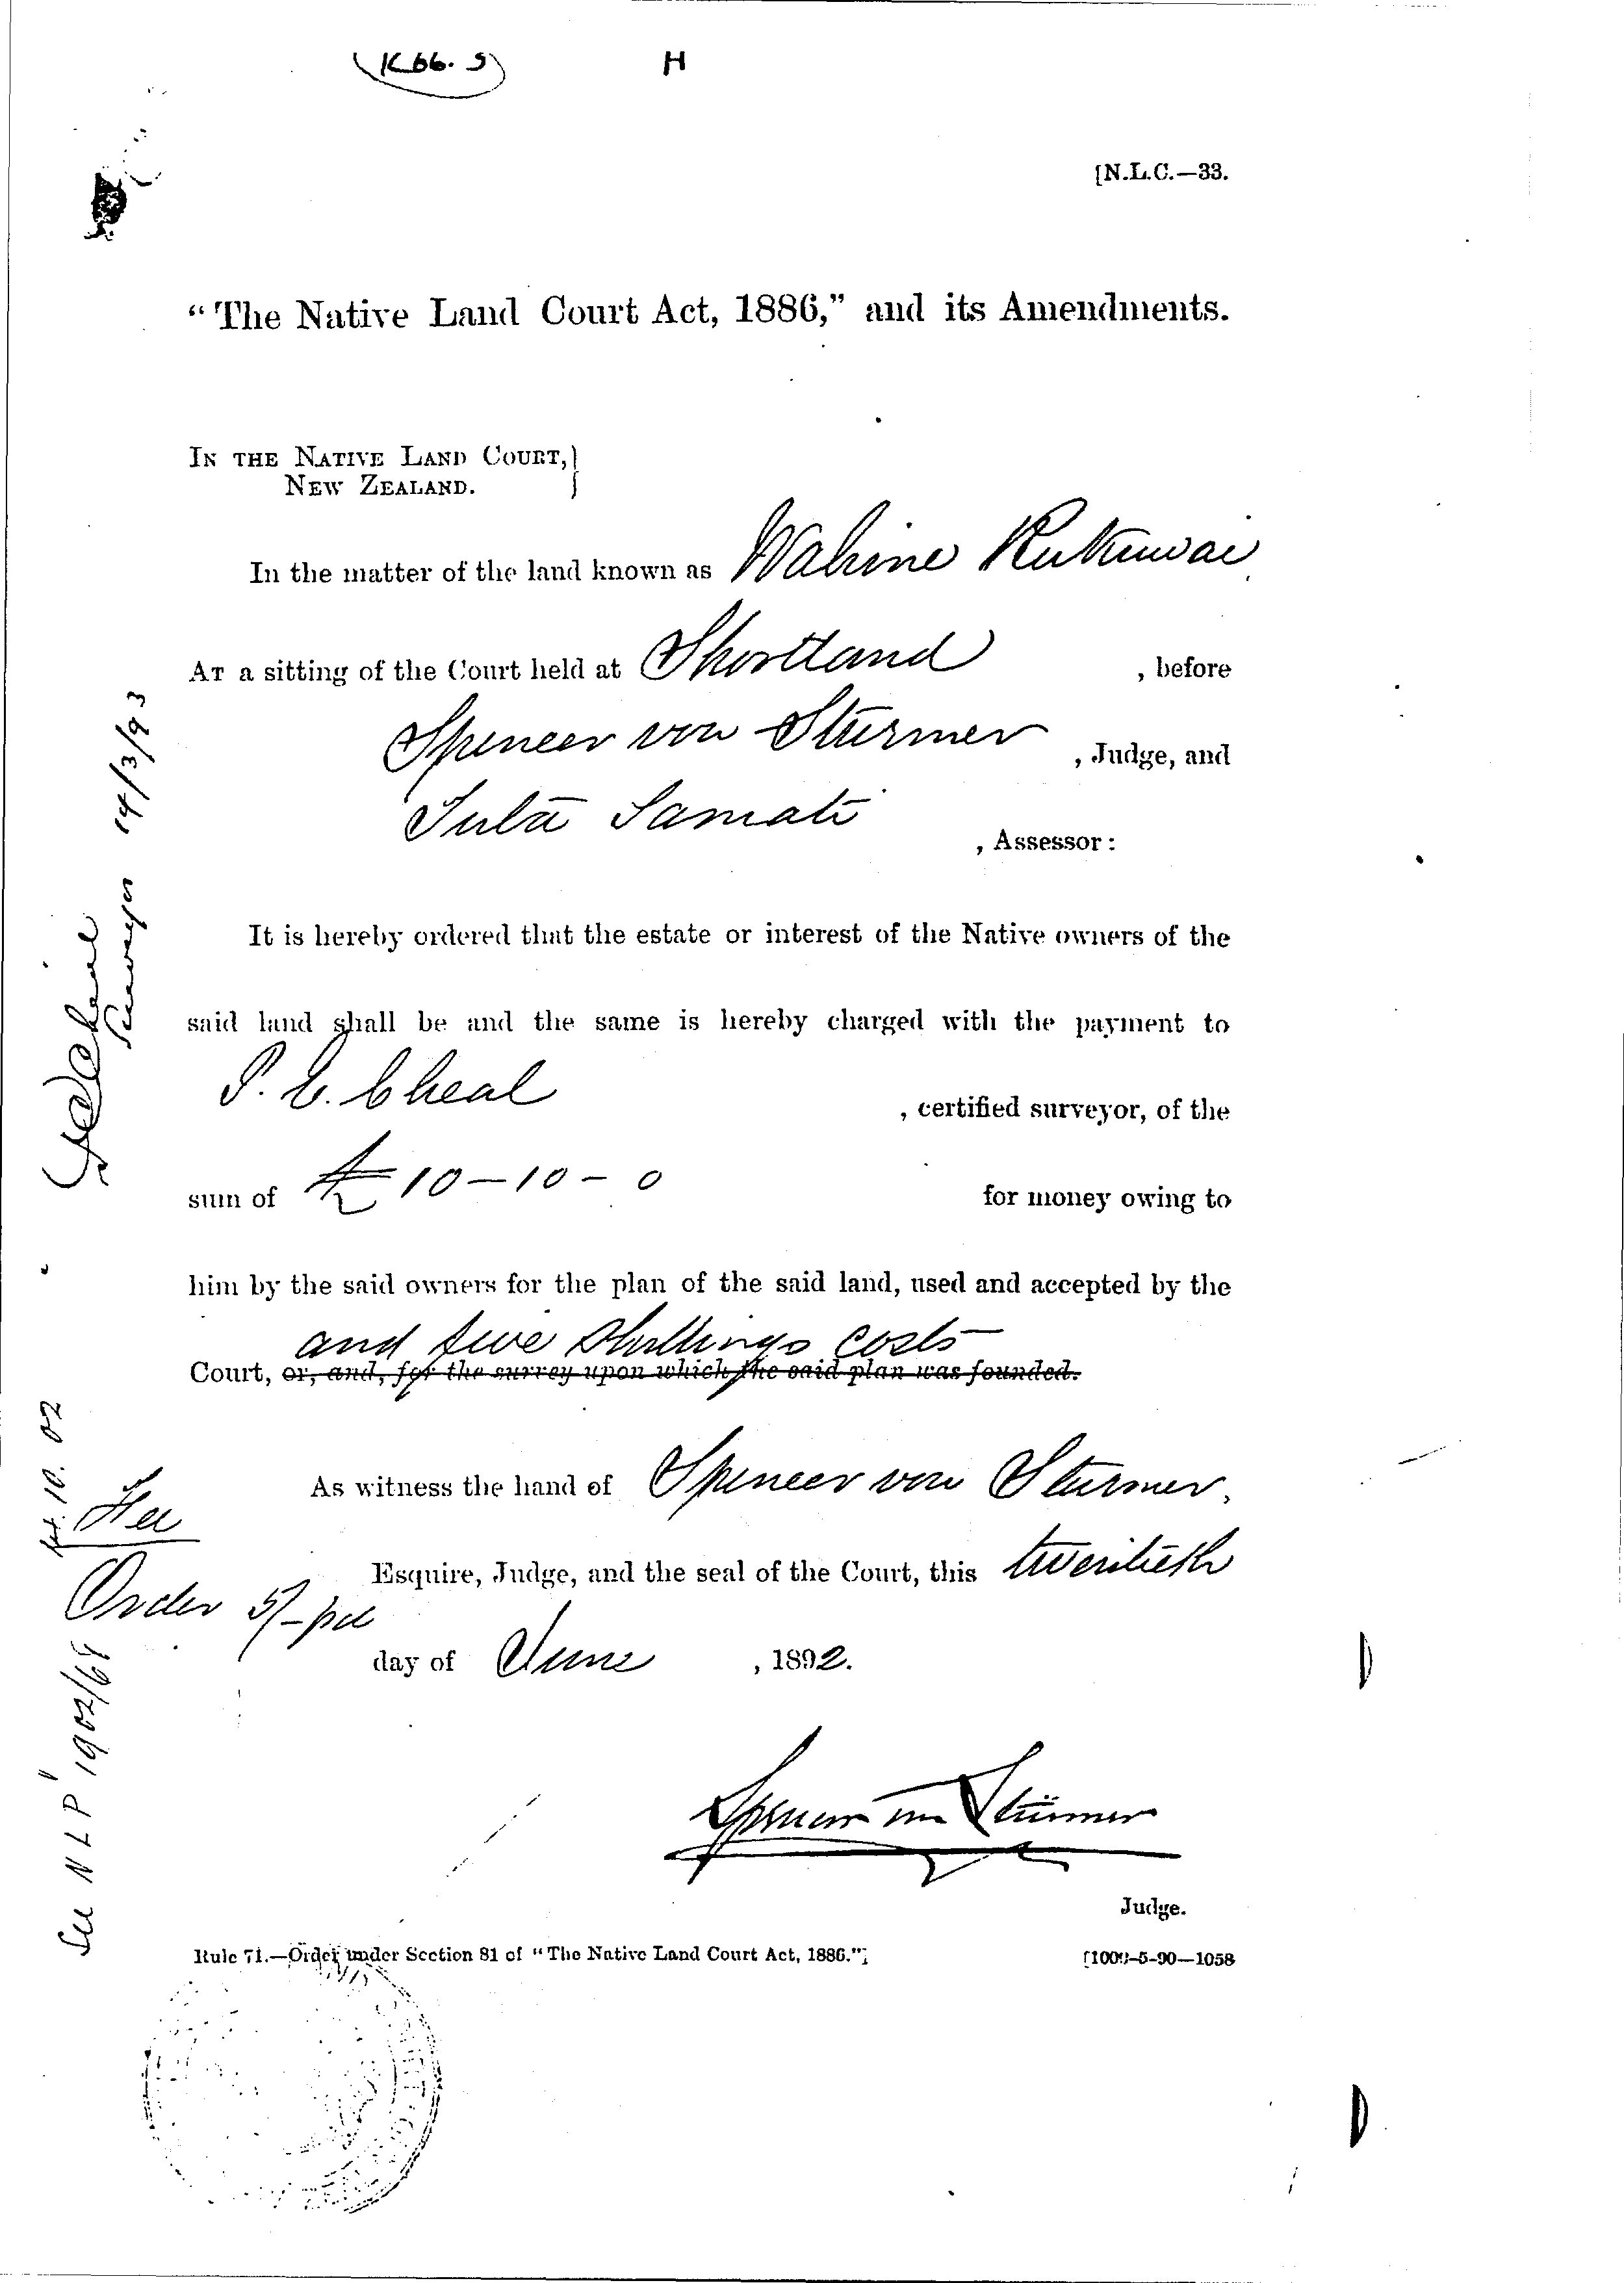 (K66. 5)
H
[N.L.C.—33.
“The Native Land Court Act, 1886,” and its Amendments.
IN THE NATIVE LAND COURT,}
NEW ZEALAND.
In the matter of the land known as Wahine Rukuwai
AT a sitting of the Court held at Shortland , before
Spencer von Sturmer , Judge, and
, Assessor :
It is hereby ordered that the estate or interest of the Native owners of the
said land shall be and the same is hereby charged with the payment to
P. E. Cheal , certified surveyor, of the
sum of £10-10-0 for money owing to
him by the said owners for the plan of the said land, used and accepted by the
and five shillings costs
Court, or, and, for the survey upon which the said plan was founded.
As witness the hand of Spencer von Sturmer,
Esquire, Judge, and the seal of the Court, this twentieth
day of June , 1892.
Spencer von Stürmer
Judge.
Rule 71.—Order under Section 81 of “The Native Land Court Act, 1886.”]
-5-90—1058
Surveyor 14/3/93
10. 02
Order 5/- pd
See NLP 1902/68